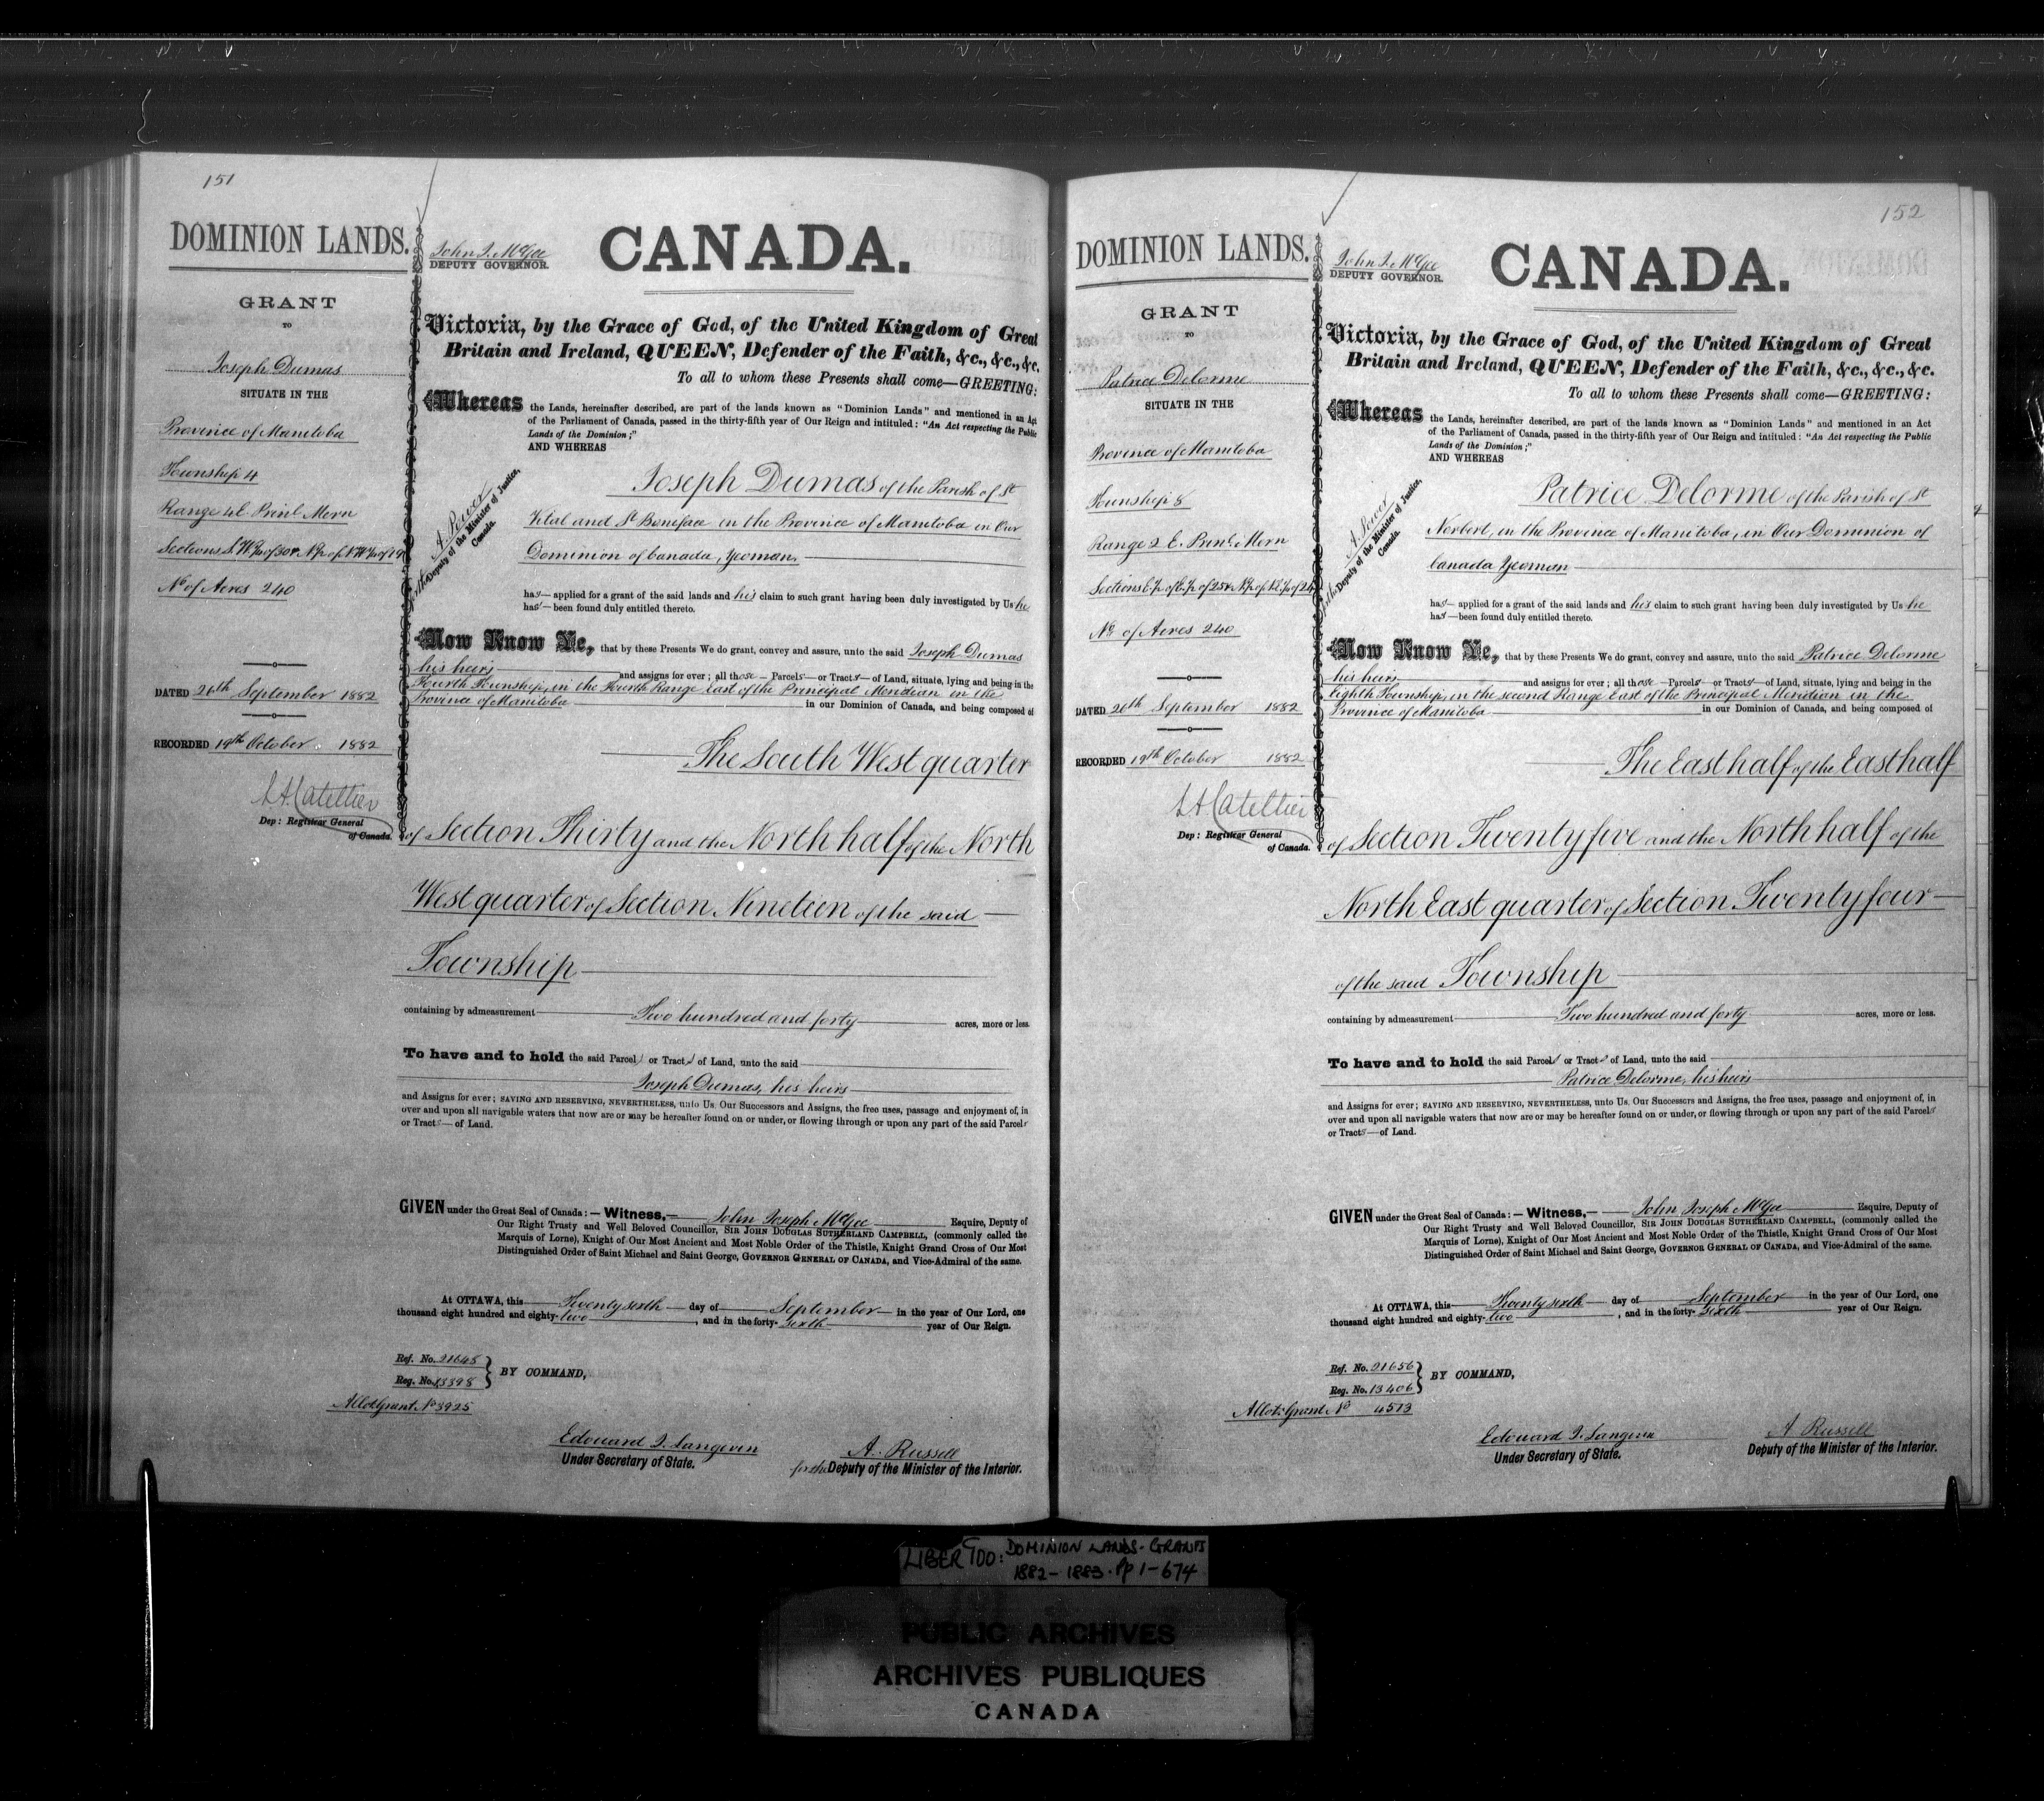 151
DOMINION LANDS.
GRANT
TO
Joseph Dumas
SITUATE IN THE
Province of Manitoba
Township 4
Range 4 E. Prinl Mern
Sections S.W.¼ of 30 & N.½ of N.W.¼ of 19
No of Acres 240
DATED 26th September 1882
RECORDED 19th October 1882
L A Catellier
Dep: Registrar General
of Canada.
John J. McGee
DEPUTY GOVERNOR.
CANADA.
Victoria, by the Grace of God, of the United Kingdom of Great
Britain and Ireland, QUEEN, Defender of the Faith, &c., &c., &c.
To all to whom these Presents shall come—GREETING:
Whereas the Lands, hereinafter described, are part of the lands known as "Dominion Lands" and mentioned in an Act
of the Parliament of Canada, passed in the thirty-fifth year of Our Reign and intituled: "An Act respecting the Public
Lands of the Dominion;"
AND WHEREAS
A. Power
for the Deputy of the Minister of Justice,
Canada.
Joseph Dumas of the Parish of St
Vital and St Boniface in the Province of Manitoba in Our
Dominion of Canada, Yeoman.
has— applied for a grant of the said lands and his claim to such grant having been duly investigated by Us he
has— been found duly entitled thereto.
Now Know Ye, that by these Presents We do grant, convey and assure, unto the said Joseph Dumas
his heirs and assigns for ever; all those — Parcels — or Tracts — of Land, situate, lying and being in the
Fourth Township, in the Fourth Range East of the Principal Meridian in the
Province of Manitoba in our Dominion of Canada, and being composed of
The South West quarter
of Section Thirty and the North half of the North
West quarter of Section Nineteen of the said
Township
containing by admeasurement Two hundred and forty acres, more or less.
To have and to hold the said Parcels or Tracts of Land, unto the said
Joseph Dumas, his heirs
and Assigns for ever; SAVING AND RESERVING, NEVERTHELESS, unto Us. Our Successors and Assigns, the free uses, passage and enjoyment of, in
over and upon all navigable waters that now are or may be hereafter found on or under, or flowing through or upon any part of the said Parcels
or Tracts — of Land.
GIVEN under the Great Seal of Canada: — Witness,— John Joseph McGee Esquire, Deputy of
Our Right Trusty and Well Beloved Councillor, SIR JOHN DOUGLAS SUTHERLAND CAMPBELL, (commonly called the
Marquis of Lorne), Knight of Our Most Ancient and Most Noble Order of the Thistle, Knight Grand Cross of Our Most
Distinguished Order of Saint Michael and Saint George, GOVERNOR GENERAL OF CANADA, and Vice-Admiral of the same.
At OTTAWA, this Twenty sixth day of September in the year of Our Lord, one
thousand eight hundred and eighty-two, and in the forty-sixth year of Our Reign.
Ref. No. 21645
Reg. No. 13398
BY COMMAND,
Allot Grant No 3925
Edouard J. Langevin
Under Secretary of State.
A. Russell
for the Deputy of the Minister of the Interior.
152
DOMINION LANDS.
GRANT
TO
Patrice Delorme
SITUATE IN THE
Province of Manitoba
Township 8
Range 2 E. Prinl Mern
Sections E.½ of E.½ of 25 & N.½ of N.E.¼ of 24
No of Acres 240
DATED 26th September 1882
RECORDED 19th October 1882
L A Catellier
Dep: Registrar General
of Canada.
John J. McGee
DEPUTY GOVERNOR.
CANADA.
Victoria, by the Grace of God, of the United Kingdom of Great
Britain and Ireland, QUEEN, Defender of the Faith, &c., &c., &c.
To all to whom these Presents shall come—GREETING:
Whereas the Lands, hereinafter described, are part of the lands known as "Dominion Lands" and mentioned in an Act
of the Parliament of Canada, passed in the thirty-fifth year of Our Reign and intituled: "An Act respecting the Public
Lands of the Dominion;"
AND WHEREAS
A. Power
for the Deputy of the Minister of Justice,
Canada.
Patrice Delorme of the Parish of St
Norbert, in the Province of Manitoba, in Our Dominion of
Canada Yeoman
has— applied for a grant of the said lands and his claim to such grant having been duly investigated by Us he
has— been found duly entitled thereto.
Now Know Ye, that by these Presents We do grant, convey and assure, unto the said Patrice Delorme
his heirs and assigns for ever; all those — Parcels — or Tracts — of Land, situate, lying and being in the
Eighth Township, in the second Range East of the Principal Meridian in the
Province of Manitoba in our Dominion of Canada, and being composed of
The East half of the East half
of Section Twenty five and the North half of the
North East quarter of Section Twenty four
of the said Township
containing by admeasurement Two hundred and forty acres, more or less.
To have and to hold the said Parcels or Tracts of Land, unto the said
Patrice Delorme, his heirs
and Assigns for ever; SAVING AND RESERVING, NEVERTHELESS, unto Us. Our Successors and Assigns, the free uses, passage and enjoyment of, in
over and upon all navigable waters that now are or may be hereafter found on or under, or flowing through or upon any part of the said Parcels
or Tracts — of Land.
GIVEN under the Great Seal of Canada: — Witness,— John Joseph McGee Esquire, Deputy of
Our Right Trusty and Well Beloved Councillor, SIR JOHN DOUGLAS SUTHERLAND CAMPBELL, (commonly called the
Marquis of Lorne), Knight of Our Most Ancient and Most Noble Order of the Thistle, Knight Grand Cross of Our Most
Distinguished Order of Saint Michael and Saint George, GOVERNOR GENERAL OF CANADA, and Vice-Admiral of the same.
At OTTAWA, this Twenty sixth day of September in the year of Our Lord, one
thousand eight hundred and eighty-two, and in the forty-sixth year of Our Reign.
Ref. No. 21656
Reg. No. 13406
BY COMMAND,
Allot. Grant No 4513
Edouard J. Langevin
Under Secretary of State.
A Russell
Deputy of the Minister of the Interior.
LIBER 900: DOMINION LANDS - GRANTS
1882 - 1883. Pp 1 - 674
PUBLIC ARCHIVES
ARCHIVES PUBLIQUES
CANADA